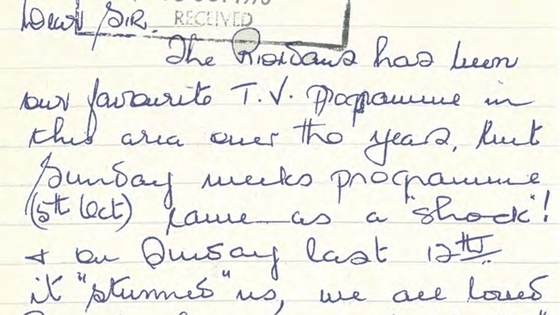 RECEIVED
Dear Sir.
The Riordans has been
our favourite T.V. Programme in
this area over the years, but
Sunday weeks programme
(5th Oct) came as a "shock"!
+ on Sunday last 12th
it "stunned" us, we all loved